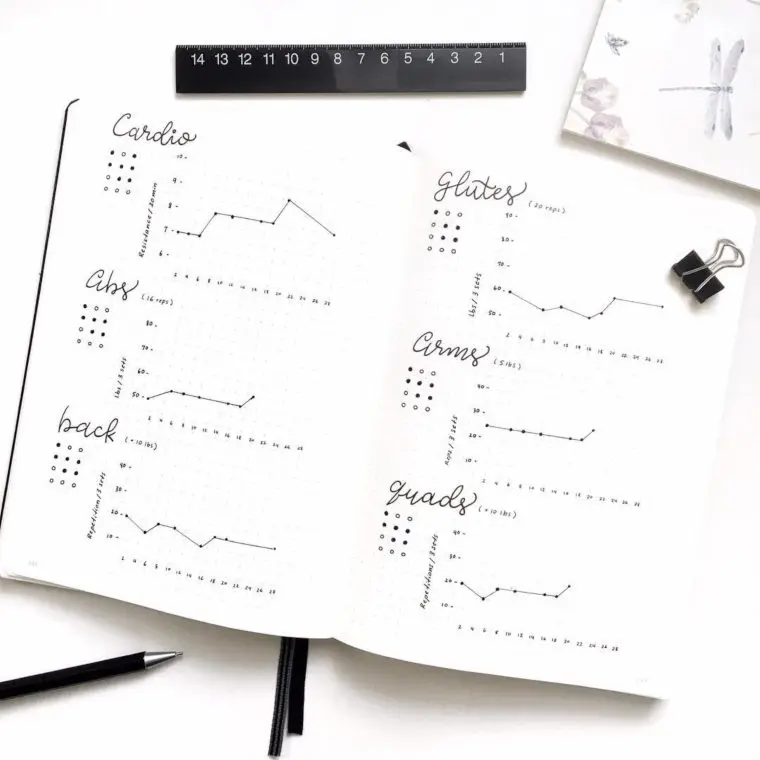 14 13 12 11 10 9 8 7 6 5 4 3 2 1
Cardio
10 -
9 -
8 -
7 -
6 -
Resistance / 20 min
2 4 6 8 10 12 14 16 18 20 22 24 26 28
Abs (16 reps)
80 -
70 -
60 -
50 -
Lbs / 3 sets
2 4 6 8 10 12 14 16 18 20 22 24 26 28
back (+10 lbs)
40 -
30 -
20 -
10 -
Repetition / 3 sets
2 4 6 8 10 12 14 16 18 20 22 24 26 28
Glutes (20 reps)
90 -
80 -
70 -
60 -
50 -
Lbs / 3 sets
2 4 6 8 10 12 14 16 18 20 22 24 26 28
Arms (5 lbs)
40 -
30 -
20 -
10 -
Reps / 3 sets
2 4 6 8 10 12 14 16 18 20 22 24 26 28
quads (+10 lbs)
40 -
30 -
20 -
10 -
Repetitions / 3 sets
2 4 6 8 10 12 14 16 18 20 22 24 26 28